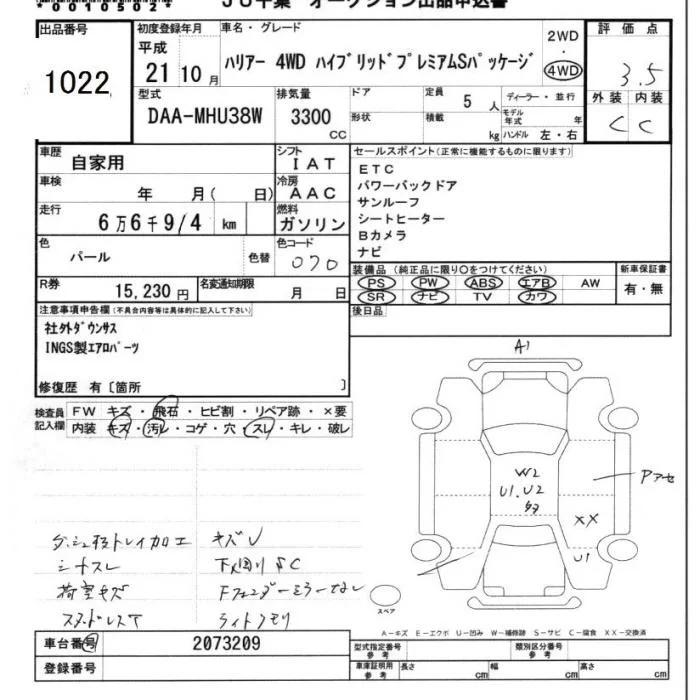 *00105021*
JU千葉 オークション出品申込書
出品番号
1022
初度登録年月
平成
21 年 10 月
車名・グレード
ハリアー 4WD ハイブリッドプレミアムSパッケージ
2WD
・
4WD
評価点
3.5
外装 内装
C C
型式
DAA-MHU38W
排気量
3300
CC
ドア
形状
定員
5 人
積載
kg
ディーラー・並行
モデル年式 年
ハンドル 左・右
車歴
自家用
シフト
IAT
車検
年 月( 日)
冷房
AAC
走行
6万6千9/4 km
燃料
ガソリン
色
パール
色替
色コード
070
R券
15,230円
名変通知期限
月 日
セールスポイント(正常に機能するものに限ります)
ETC
パワーバックドア
サンルーフ
シートヒーター
Bカメラ
ナビ
装備品 (純正品に限り○をつけてください)
PS PW ABS エアB AW
SR ナビ TV カワ
新車保証書
有・無
後日品
注意事項申告欄(不具合内容等は具体的に記入して下さい)
社外ダウンサス
INGS製エアロパーツ
修復歴 有〔箇所 〕
検査員
記入欄
FW キズ・飛石・ヒビ割・リペア跡・×要
内装 キズ・汚レ・コゲ・穴・スレ・キレ・破レ
A1
W2
U1.U2
XX
U1
Pアセ
キズU
シートスレ
下廻りSC
荷室キズ
Fフェンダーミラーなし
スタッドレスT
ライトクモリ
スペア
A-キズ E-エクボ U-凹み W-補修跡 S-サビ C-腐食 XX-交換済
車台番号
2073209
登録番号
型式指定番号
参考
類別区分番号
参考
車庫証明用
参考
長さ cm
幅 cm
高さ cm